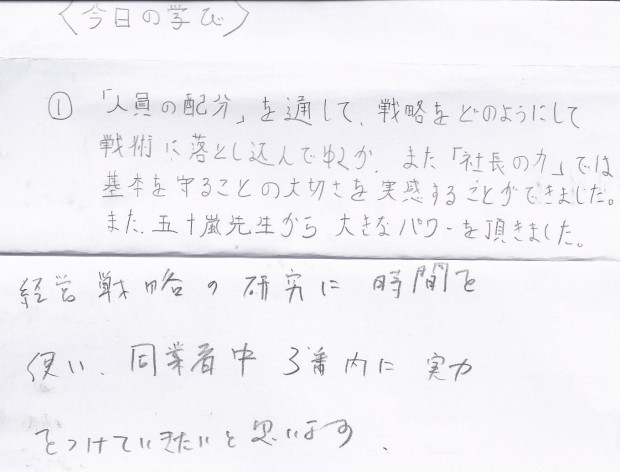 〈今日の学び〉
① 「人員の配分」を通して、戦略をどのようにして
戦術に落とし込んでゆくか、また「社長の力」では
基本を守ることの大切さを実感することができました。
また、五十嵐先生から 大きなパワーを頂きました。
経営戦略の研究に時間を
使い、同業者中3番内に実力
をつけていきたいと思います。